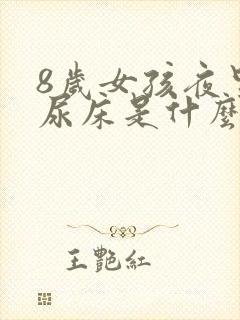 8歲女孩夜里
尿床是什麼
王艷紅